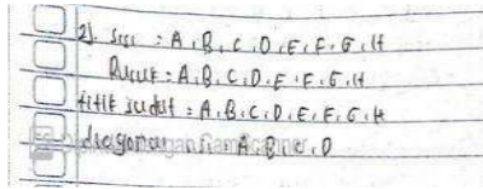 2). sisi : A, B, C, D, E, F, G, H
Rusuk : A, B, C, D, E, F, G, H
titik sudut : A, B, C, D, E, F, G, H
diagonal sisi : A, B, C, D